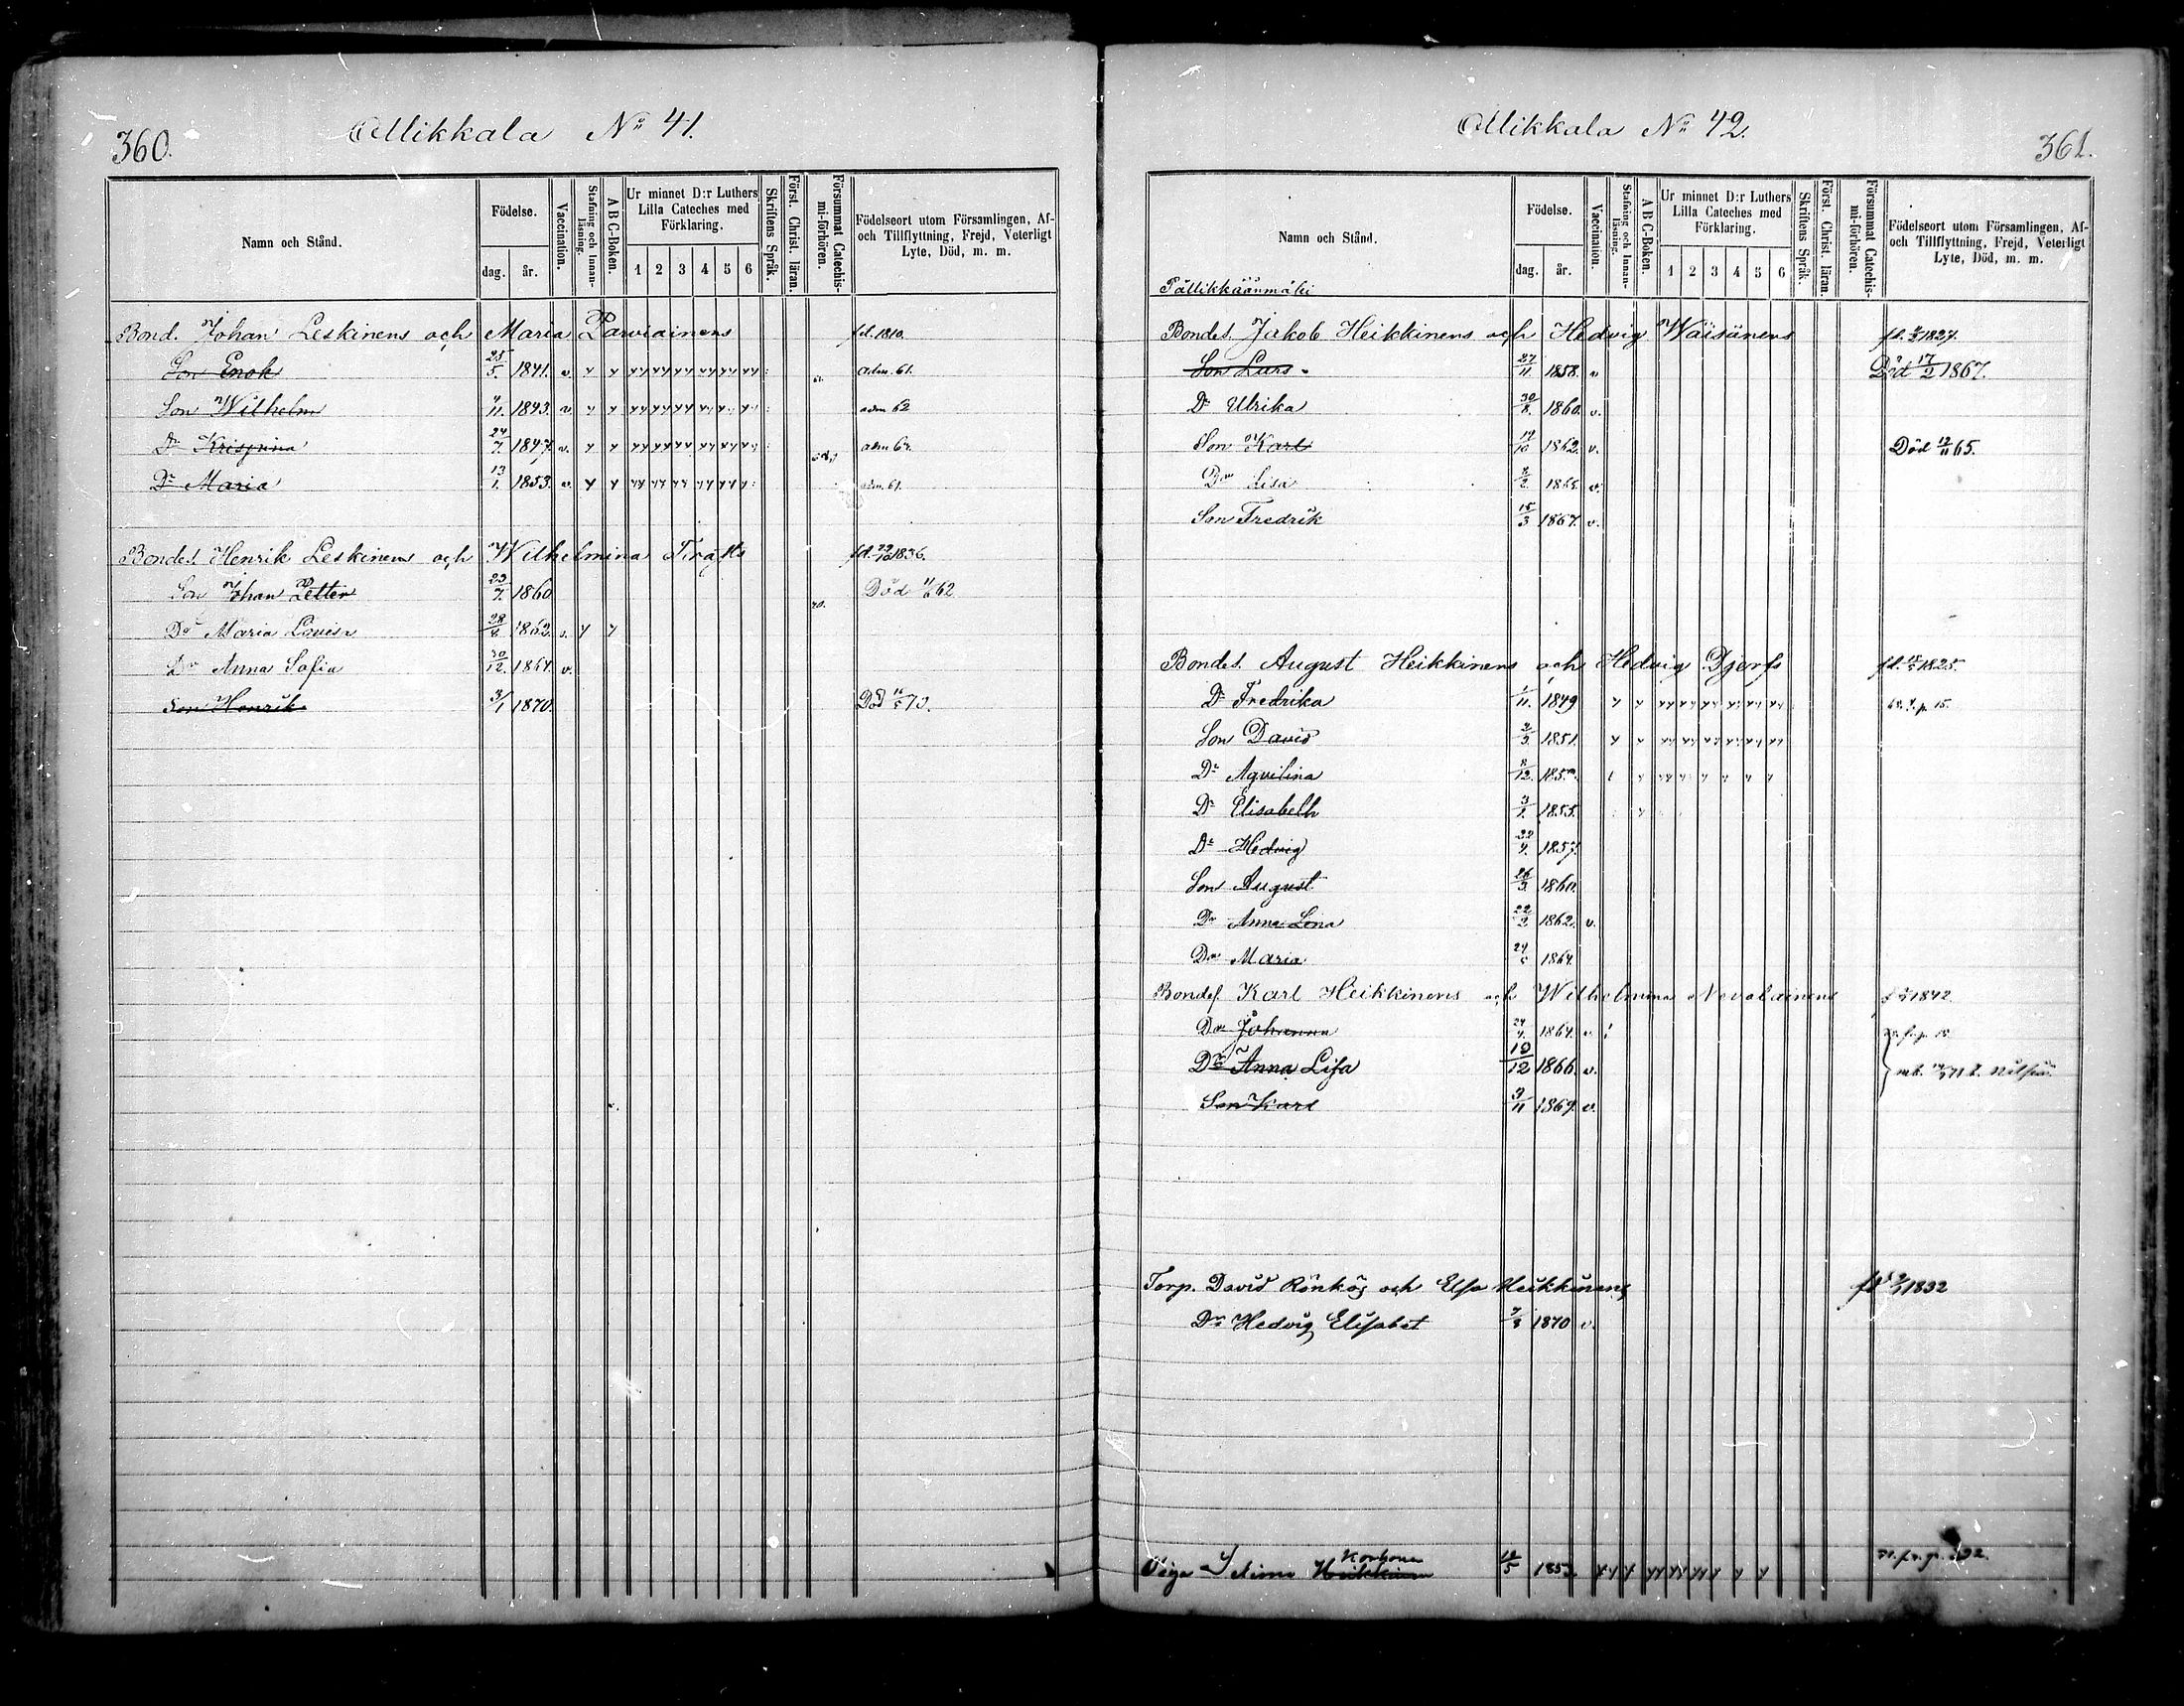 360.
Mikkala No 41.
Namn och Stånd.
Födelse.
dag. år.
Vaccination.
Stafning och Innanläsning.
A B C-Boken.
Ur minnet D:r Luthers Lilla Cateches med Förklaring.
1 2 3 4 5 6
Skriftens Språk.
Först. Christ. läran.
Försummat Catechismi-förhören.
Födelseort utom Församlingen, Af- och Tillflyttning, Frejd, Veterligt Lyte, Död, m. m.
Bond. Johan Leskinens och Maria Parviainens fd. 1810.
Son Enok 25/5. 1841. v. adm. 61.
Son Wilhelm 4/11. 1843. v. adm 62
Dr Krispina 24/7. 1847. v. adm
Dr Maria 13/1. 1853. v. adm. 61.
Bondes. Henrik Leskinens och Wilhelmina Träffs fd. 29/10 1836.
Son Johan Petter 23/7. 1860 Död 11/6 62
Dr Maria Lovisa 28/8 1862. v.
Dr Anna Sofia 30/12. 1864. v.
Son Henrik 3/1 1870. Död 16/5 70.
Mikkala No 42.
361.
Namn och Stånd.
Pällikkäänmäki
Födelse.
dag. år.
Vaccination.
Stafning och Innanläsning.
A B C-Boken.
Ur minnet D:r Luthers Lilla Cateches med Förklaring.
1 2 3 4 5 6
Skriftens Språk.
Först. Christ. läran.
Försummat Catechismi-förhören.
Födelseort utom Församlingen, Af- och Tillflyttning, Frejd, Veterligt Lyte, Död, m. m.
Bondes. Jakob Heikkinens och Hedvig Wäisänens fd. 1827.
Son Lars 27/11 1858. v Död 17/2 1867.
Dr Ulrika 30/8. 1860. v.
Son Karl 19/10 1862. v. Död 12/11 65.
Dr Lisa 2/2. 1865. v.
Son Fredrik 15/3 1867. v.
Bondes. August Heikkinens och Hedvig Djerfs fd. 1825.
Dr Fredrika 1/11. 1849
Son David 2/3. 1851.
Dr Aqvilina 8/12. 185
Dr Elisabeth 3/1. 1855.
Dr Hedvig 22/4. 1857.
Son August 26/3 1860.
Dr Anna Lena 22/2 1862. v.
Dr Maria 24/5 1864.
Bondes. Karl Heikkinens och Wilhelmina Nevalainens 1842
Dr Johanna 24/4. 1864. v
Dr Anna Lisa 10/12 1866. v.
Son Karl 3/11 1869. v.
Torp. David Rönkös och Elsa Heikkinens fd 1832
Dr Hedvig Elisabet 7/3 1870 v.
Korhonen
Piga Heikkinen 12/5 1853.